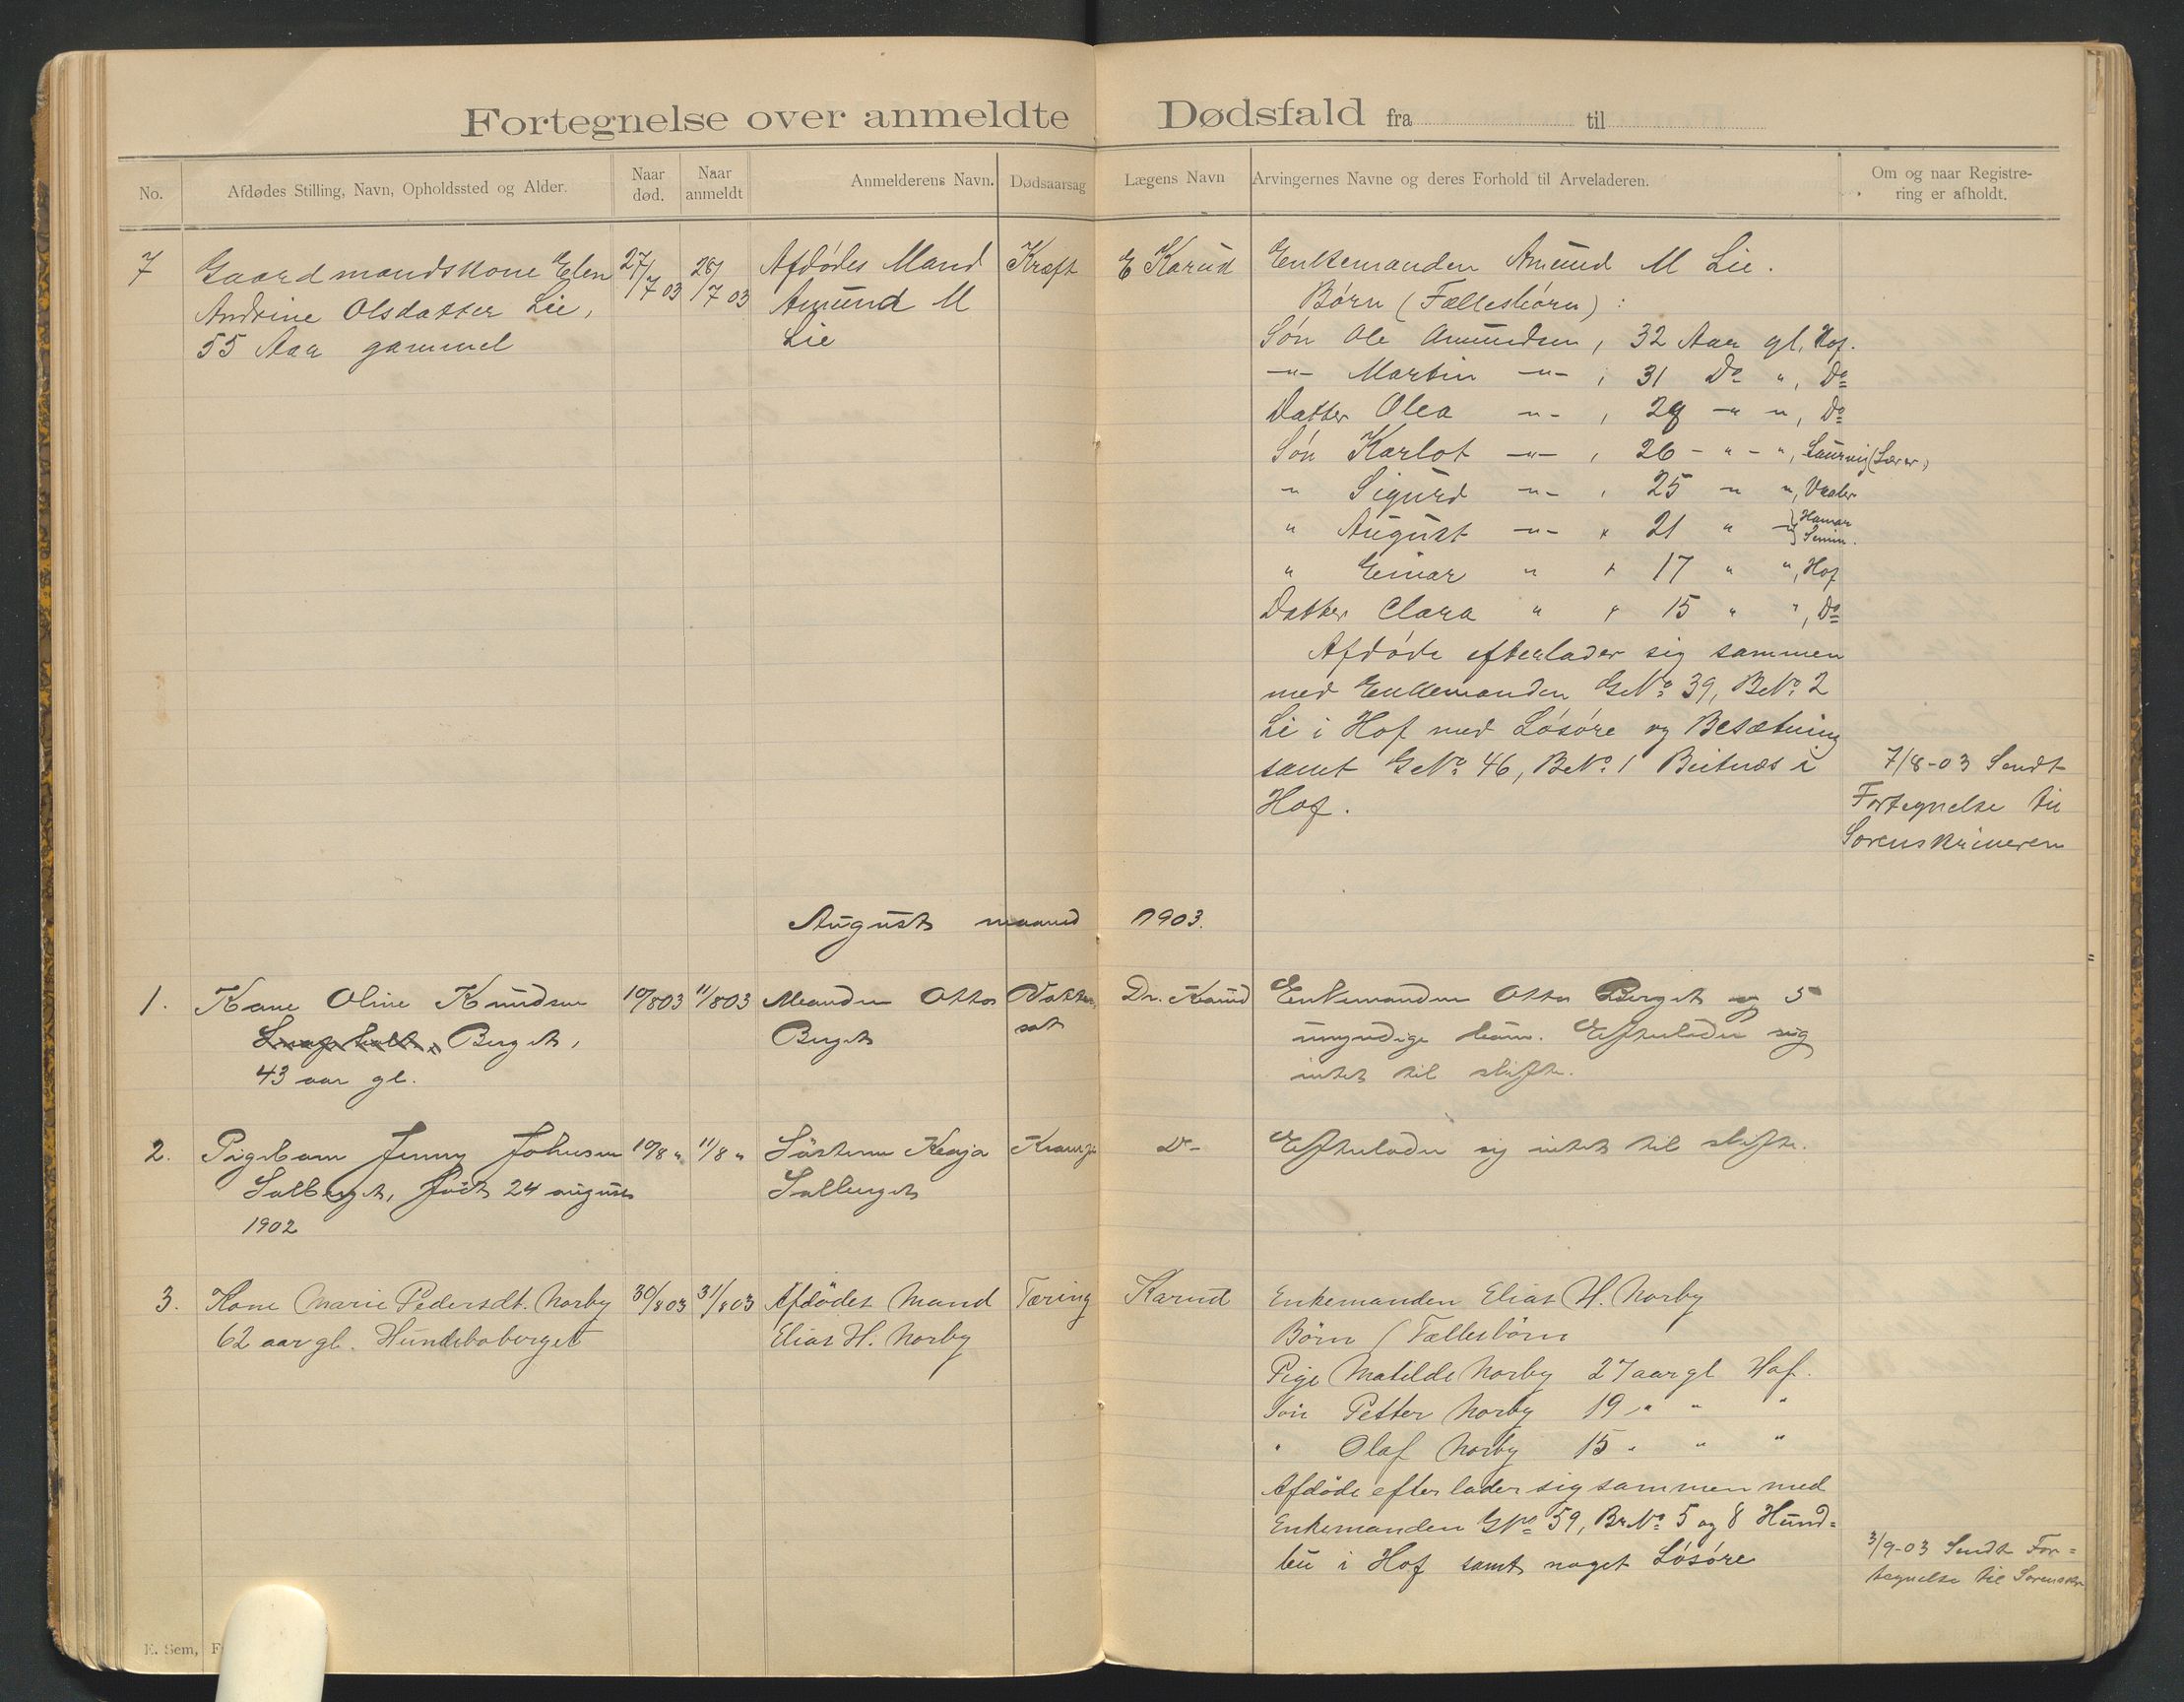 Fortegnelse over anmeldte Dødsfald fra til
No.
Afdødes Stilling, Navn, Opholdssted og Alder.
Naar død.
Naar anmeldt
Anmelderens Navn.
Dødsaarsag
Lægens Navn
Arvingernes Navne og deres Forhold til Arveladeren.
Om og naar Registrering er afholdt.
7
Gaardmandskone Elen
Andrine Olsdatter Lie,
55 Aar gammel
27/7 03
28/7 03
Afdødes Mand
Amund M
Lie
Kræft
E Karud
Enkemanden Amund M Lie.
Børn (Fællesbørn):
Søn Ole Amundsen, 32 Aar gl, Hof.
-"- Martin -"- , 31 Do ", Do
Datter Olea -"- , 29 -" ", Do
Søn Karlot -"- , 26 - " - ", Laurvig (Lærer)
" Sigurd -"- , 25 " ", Vaaler
" August -"- , 21 " " Hamar Semin.
" Einar " , 17 " ", Hof
Datter Clara " , 15 " ", Do
Afdøde efterlader sig sammen
med Enkemanden GNo. 39, BNo. 2
Li i Hof med Løsøre og Besætning
samt GNo. 46, BNo. 1 Beitnæs i
Hof.
7/8-03 Sendt
Fortegnelse til
Sorenskriveren
August maaned 1903.
1.
Kone Oline Knudsen
Berget,
43 aar gl.
10/8 03
11/8 03
Manden Otto
Berget
Vattersot
Dr. Karud
Enkemanden Otto Berget og 5
umyndige børn. Efterlader sig
intet til skifte.
2.
Pigebarn Jenny Johnsen
Salberget, født 24 august
1902
10/8 "
11/8 "
Søsteren Kaja
Salberget
Do-
Efterlader sig intet til skifte.
3.
Kone Marie Pedersdt. Norby
62 aar gl. Hundeboberget
30/8 03
31/8 03
Afdödes Mand
Elias H. Norby
Tæring
Karud
Enkemanden Elias H. Norby
Börn (Fællesbörn
Pige Matilde Norby 27 aar gl Hof.
Sön Petter Norby 19 " " "
" Olaf Norby 15 " " "
Afdöde efterlader sig sammen med
Enkemanden GNo 59, BrNo. 5 og 8 Hund=
bu i Hof samt noget Løsøre
3/9-03 Sendt For=
tegnelse til Sorenskr
E. Sem, F